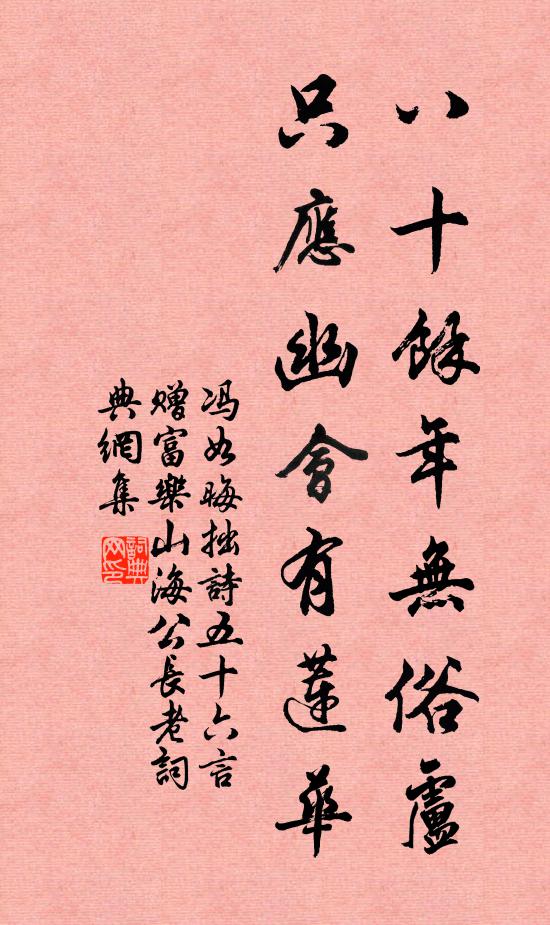 八十餘年無俗廬
只應幽會有蓮華
馮如晦拙詩五十六言
贈富樂山海公長老詞
典網集
詞典網印